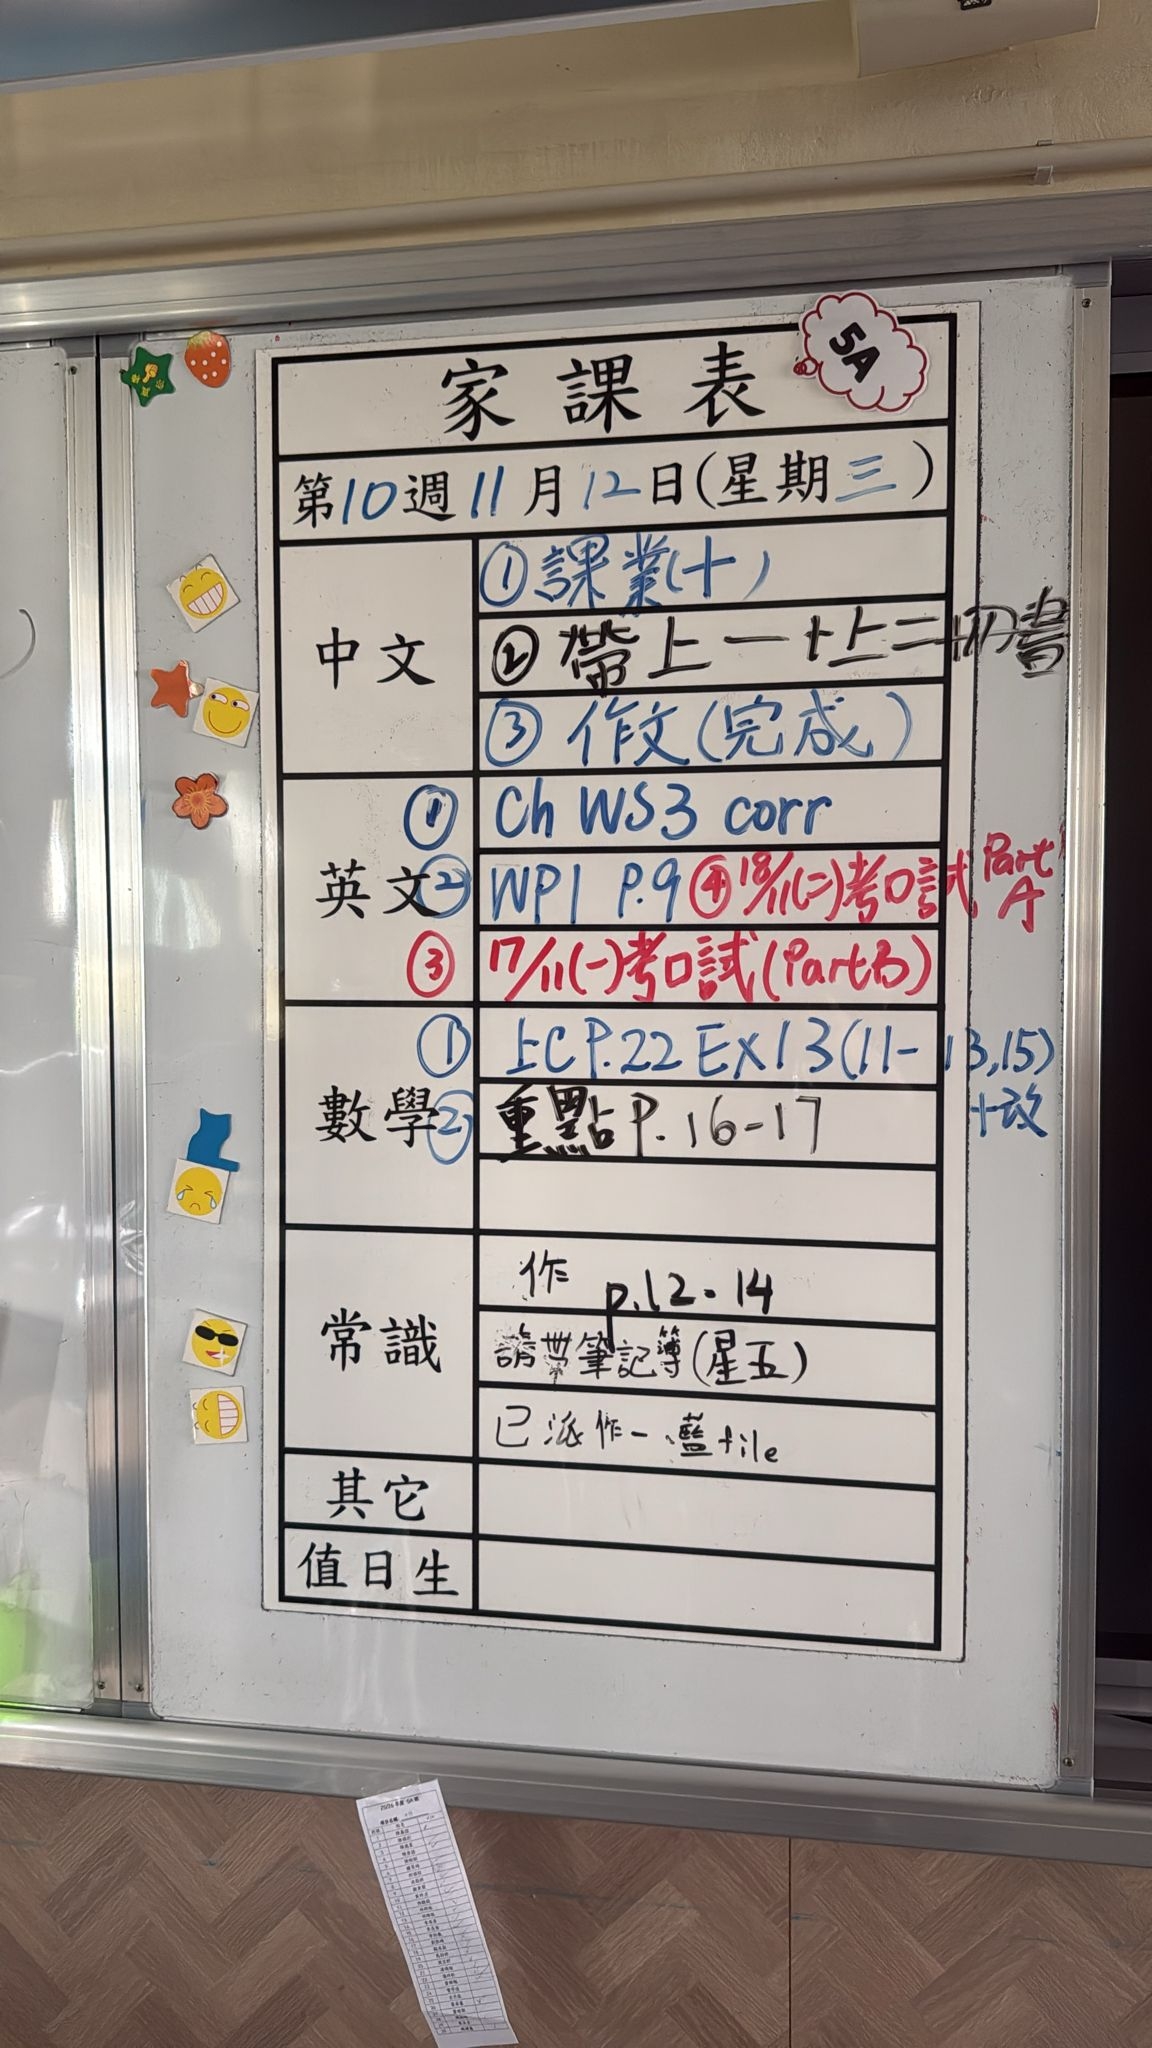 5A
家課表
第10週11月12日(星期三)
中文
①課業(十)
②帶上一+上二+初書
③作文(完成)
英文
① Ch WS3 corr
② WP1 P.9 ④18/11(二)考口試 Part A
③ 17/11(一)考口試(Part B)
數學
① 上C P.22 Ex13(11-13,15)
+改
② 重點P.16-17
常識
作 p.12-14
請帶筆記簿(星五)
已派作一藍file
其它
值日生